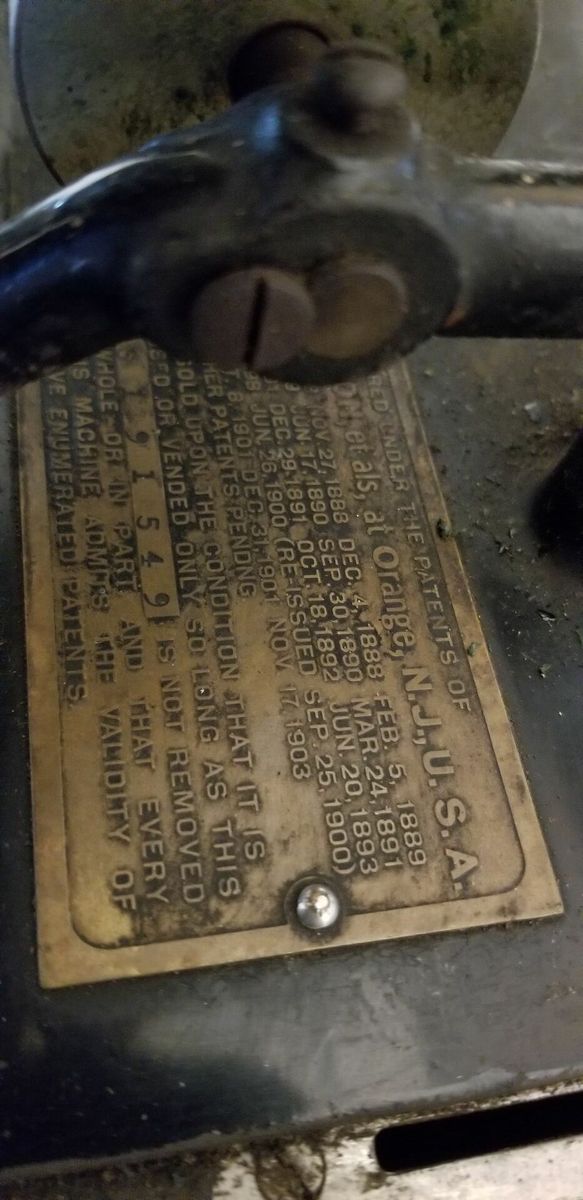 RED UNDER THE PATENTS OF
et als, at Orange, N.J., U.S.A.
NOV 27, 1888 DEC. 4, 1888 FEB. 5, 1889
JUN. 17, 1890 SEP. 30, 1890 MAR. 24, 1891
DEC. 29, 1891 OCT. 18, 1892 JUN. 20, 1893
JUN. 26, 1900 (RE-ISSUED SEP. 25, 1900)
8 1901 DEC. 31 1901 NOV 17 1903
HER PATENTS PENDING
SOLD UPON THE CONDITION THAT IT IS
SED OR VENDED ONLY SO LONG AS THIS
91549 IS NOT REMOVED
WHOLE OR IN PART AND THAT EVERY
S MACHINE ADMITS THE VALIDITY OF
VE ENUMERATED PATENTS.